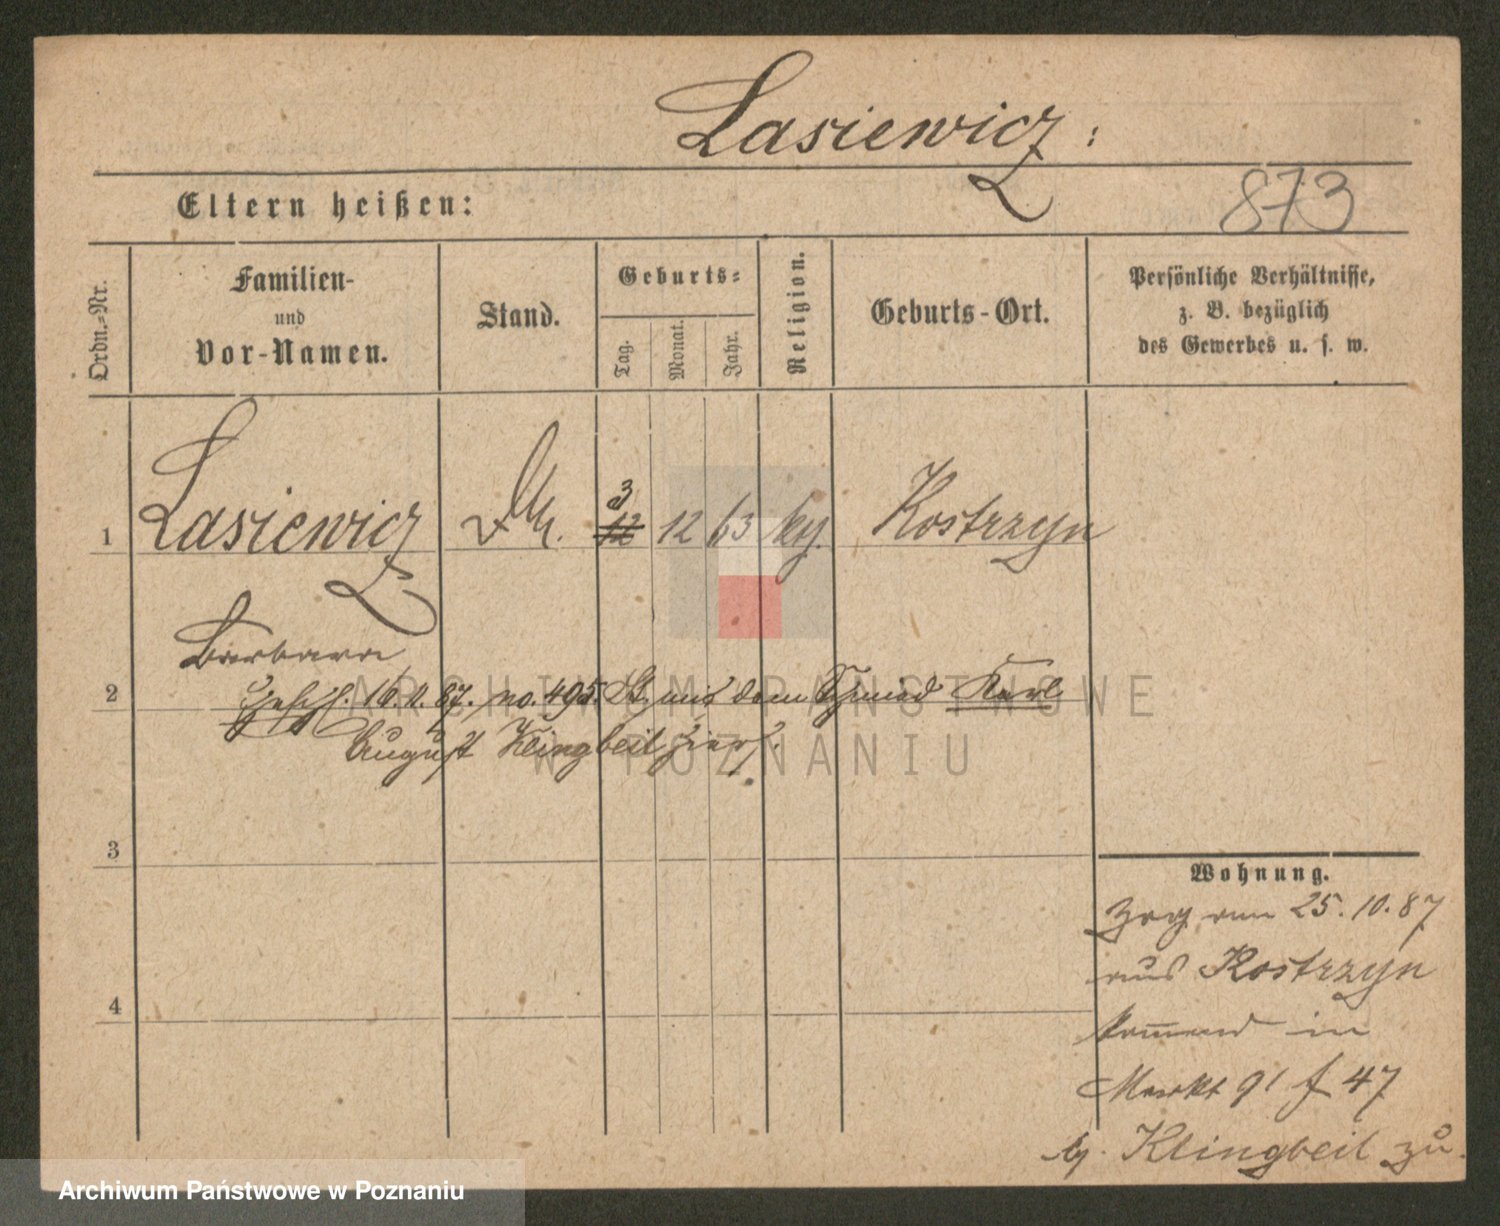 Lasiewicz:
Eltern heißen:
873
Ordn.-Nr.
Familien-
und
Vor-Namen.
Stand.
Geburts-
Tag.
Monat.
Jahr.
Religion.
Geburts-Ort.
Persönliche Verhältnisse,
z. B. bezüglich
des Gewerbes u. s. w.
1 Lasiewicz 3 12 12 63 Kostrzyn
Barbara
2 87. no. 495. mit dem Schmied Karl
August Klingbeil hier.
3
Wohnung.
Zog am 25.10.87
aus Kostrzyn
4
kommend in
Markt 91 f 47
Klingbeil zu.
ARCHIWUM PAŃSTWOWE
W POZNANIU
Archiwum Państwowe w Poznaniu